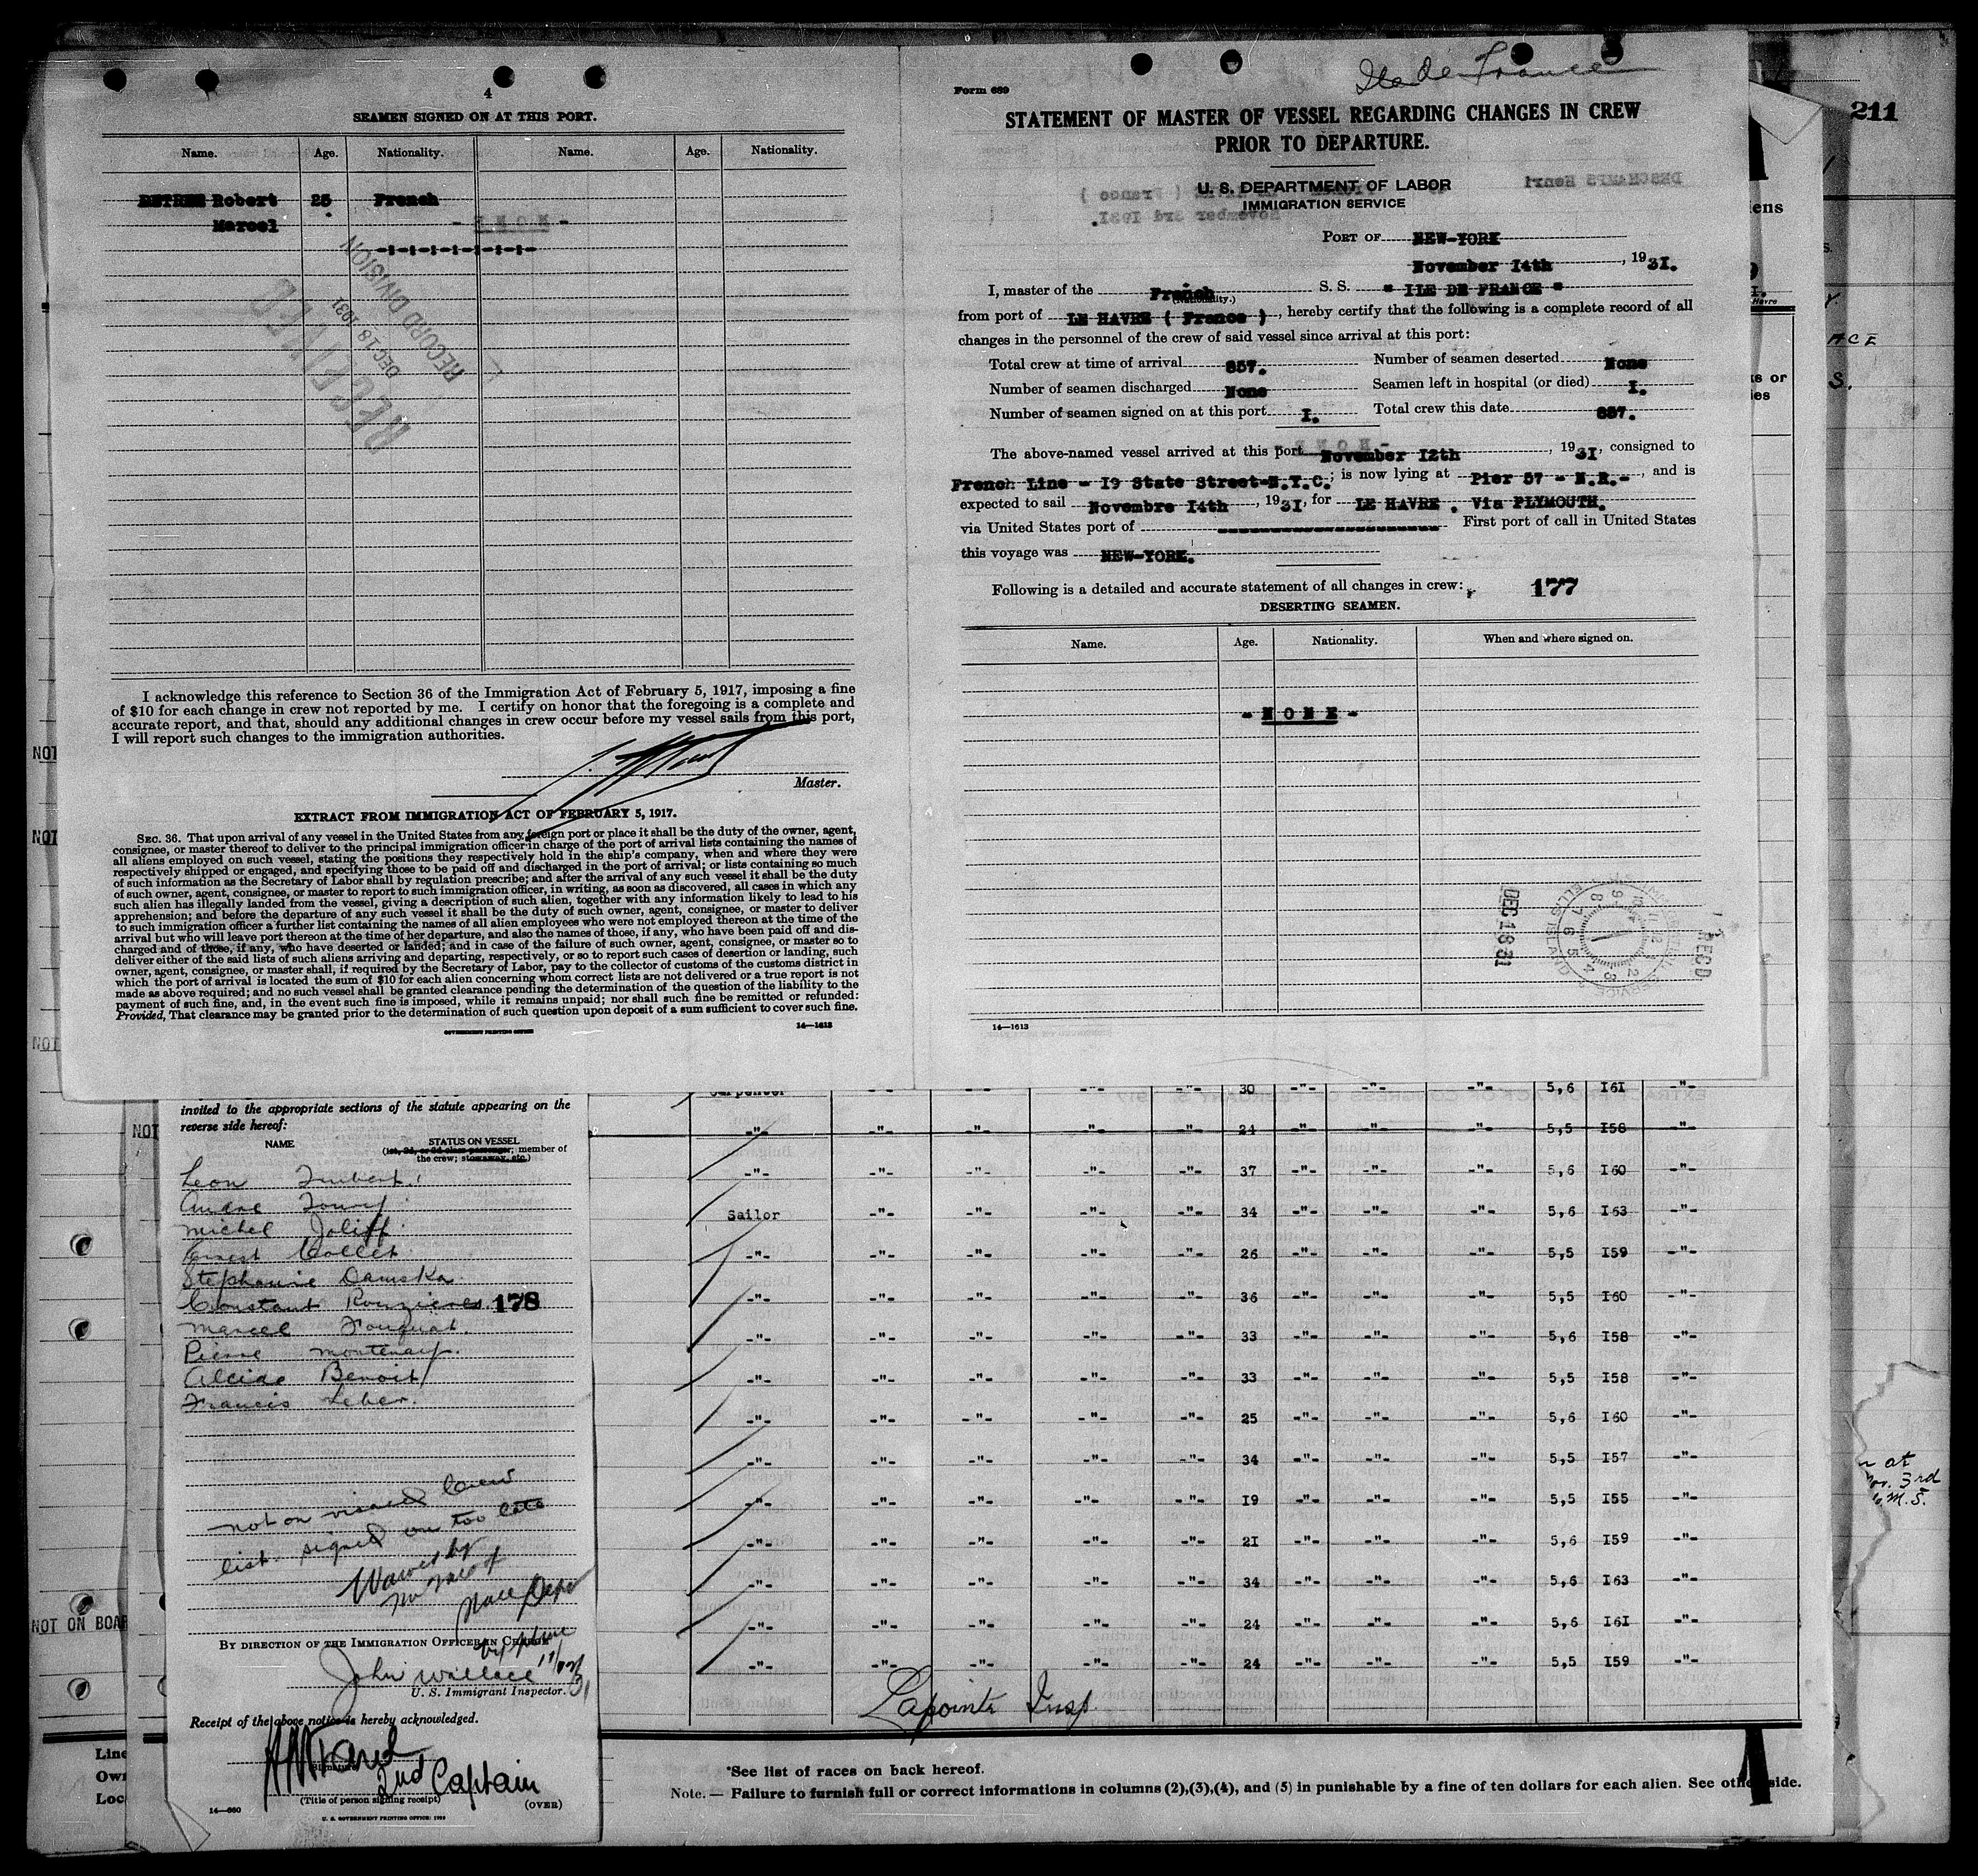 4
SEAMEN SIGNED ON AT THIS PORT.
Name. Age. Nationality. Name. Age. Nationality.
Robert 25 French
Marcel
- N O N E -
-I-I-I-I-I-I-I-I-
RECEIVED
DEC 18 1931
RECORD DIVISION
I acknowledge this reference to Section 36 of the Immigration Act of February 5, 1917, imposing a fine
of $10 for each change in crew not reported by me. I certify on honor that the foregoing is a complete and
accurate report, and that, should any additional changes in crew occur before my vessel sails from this port,
I will report such changes to the immigration authorities.
Master.
EXTRACT FROM IMMIGRATION ACT OF FEBRUARY 5, 1917.
SEC. 36. That upon arrival of any vessel in the United States from any foreign port or place it shall be the duty of the owner, agent,
consignee, or master thereof to deliver to the principal immigration officer in charge of the port of arrival lists containing the names of
all aliens employed on such vessel, stating the positions they respectively hold in the ship's company, when and where they were
respectively shipped or engaged, and specifying those to be paid off and discharged in the port of arrival; or lists containing so much
of such information as the Secretary of Labor shall by regulation prescribe; and after the arrival of any such vessel it shall be the duty
of such owner, agent, consignee, or master to report to such immigration officer, in writing, as soon as discovered, all cases in which any
such alien has illegally landed from the vessel, giving a description of such alien, together with any information likely to lead to his
apprehension; and before the departure of any such vessel it shall be the duty of such owner, agent, consignee, or master to deliver
to such immigration officer a further list containing the names of all alien employees who were not employed thereon at the time of the
arrival but who will leave port thereon at the time of her departure, and also the names of those, if any, who have been paid off and dis-
charged and of those, if any, who have deserted or landed; and in case of the failure of such owner, agent, consignee, or master so to
deliver either of the said lists of such aliens arriving and departing, respectively, or so to report such cases of desertion or landing, such
owner, agent, consignee, or master shall, if required by the Secretary of Labor, pay to the collector of customs of the customs district in
which the port of arrival is located the sum of $10 for each alien concerning whom correct lists are not delivered or a true report is not
made as above required; and no such vessel shall be granted clearance pending the determination of the question of the liability to the
payment of such fine, and, in the event such fine is imposed, while it remains unpaid; nor shall such fine be remitted or refunded:
Provided, That clearance may be granted prior to the determination of such question upon deposit of a sum sufficient to cover such fine.
GOVERNMENT PRINTING OFFICE 14—1613
Form 689
Ile de France
STATEMENT OF MASTER OF VESSEL REGARDING CHANGES IN CREW
PRIOR TO DEPARTURE.
U. S. DEPARTMENT OF LABOR
IMMIGRATION SERVICE
DESCHAMPS Henri
( France )
November 3rd 1931.
PORT OF NEW-YORK
November I4th, 1931.
I, master of the French S. S. " ILE DE FRANCE "
(Nationality.)
from port of LE HAVRE ( France ), hereby certify that the following is a complete record of all
changes in the personnel of the crew of said vessel since arrival at this port:
Total crew at time of arrival 857. Number of seamen deserted None
Number of seamen discharged None Seamen left in hospital (or died) I.
Number of seamen signed on at this port I. Total crew this date 857.
- N O N E -
The above-named vessel arrived at this port November I2th, 193I, consigned to
French Line - I9 State Street-N.Y.C.; is now lying at Pier 57 - N.R.-, and is
expected to sail Novembre I4th, 193I, for LE HAVRE . Via PLYMOUTH.
via United States port of First port of call in United States
this voyage was NEW-YORK.
Following is a detailed and accurate statement of all changes in crew: 177
DESERTING SEAMEN.
Name. Age. Nationality. When and where signed on.
- N O N E -
DEC 18 31
REC'D
14—1613
211
ACE
S.
NOT
NOT
NOT
NOT
NOT ON BOAR
invited to the appropriate sections of the statute appearing on the
reverse side hereof:
NAME STATUS ON VESSEL
(1st, 2d, or 3d class passenger; member of
the crew; stowaway, etc.)
Leon Imbert.
Andre Toury
Michel Joliff
Ernest Collet
Stephanie Damska
Constant Rouzieres 178
Marcel Fouquat.
Pierre Montenay.
Alcide Benoit
Francis Leber.
not on visaed Crew
list. signed on too late
Waived by
State Dept
By DIRECTION OF THE IMMIGRATION OFFICER IN CHARGE
John Wallace
U. S. Immigrant Inspector.
Receipt of the above notice is hereby acknowledged.
(Signature)
2nd Captain
(Title of person signing receipt)
14—660 (OVER)
U. S. GOVERNMENT PRINTING OFFICE: 1928
Carpenter -"- -"- -"- -"- 30 -"- -"- -"- 5,6 I6I -"-
-"- -"- -"- -"- -"- 24 -"- -"- -"- 5,5 I58 -"-
-"- -"- -"- -"- -"- 37 -"- -"- -"- 5,6 I60 -"-
Sailor -"- -"- -"- -"- 34 -"- -"- -"- 5,6 I63 -"-
-"- -"- -"- -"- -"- 26 -"- -"- -"- 5,5 I59 -"-
-"- -"- -"- -"- -"- 36 -"- -"- -"- 5,5 I60 -"-
-"- -"- -"- -"- -"- 33 -"- -"- -"- 5,6 I58 -"-
-"- -"- -"- -"- -"- 33 -"- -"- -"- 5,5 I58 -"-
-"- -"- -"- -"- -"- 25 -"- -"- -"- 5,6 I60 -"-
-"- -"- -"- -"- -"- 34 -"- -"- -"- 5,5 I57 -"-
-"- -"- -"- -"- -"- I9 -"- -"- -"- 5,5 I55 -"-
-"- -"- -"- -"- -"- 2I -"- -"- -"- 5,6 I59 -"-
-"- -"- -"- -"- -"- 34 -"- -"- -"- 5,6 I63 -"-
-"- -"- -"- -"- -"- 24 -"- -"- -"- 5,6 I6I -"-
-"- -"- -"- -"- -"- 24 -"- -"- -"- 5,5 I59 -"-
Lapointe Insp.
at
Nov. 3rd
M.S.
Line
Own
Loc
*See list of races on back hereof.
Note.— Failure to furnish full or correct informations in columns (2),(3),(4), and (5) in punishable by a fine of ten dollars for each alien. See other side.